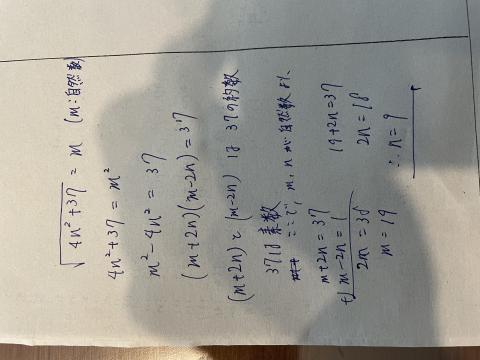 √4n²+37 = m (m:自然数)
4n²+37 = m²
m²-4n² = 37
(m+2n)(m-2n) = 37
(m+2n)と(m-2n)は37の約数
37は素数
ここで、m,nが自然数より、
m+2n=37
+) m-2n=1
2m=38
m=19
19+2n=37
2n=18
∴n=9